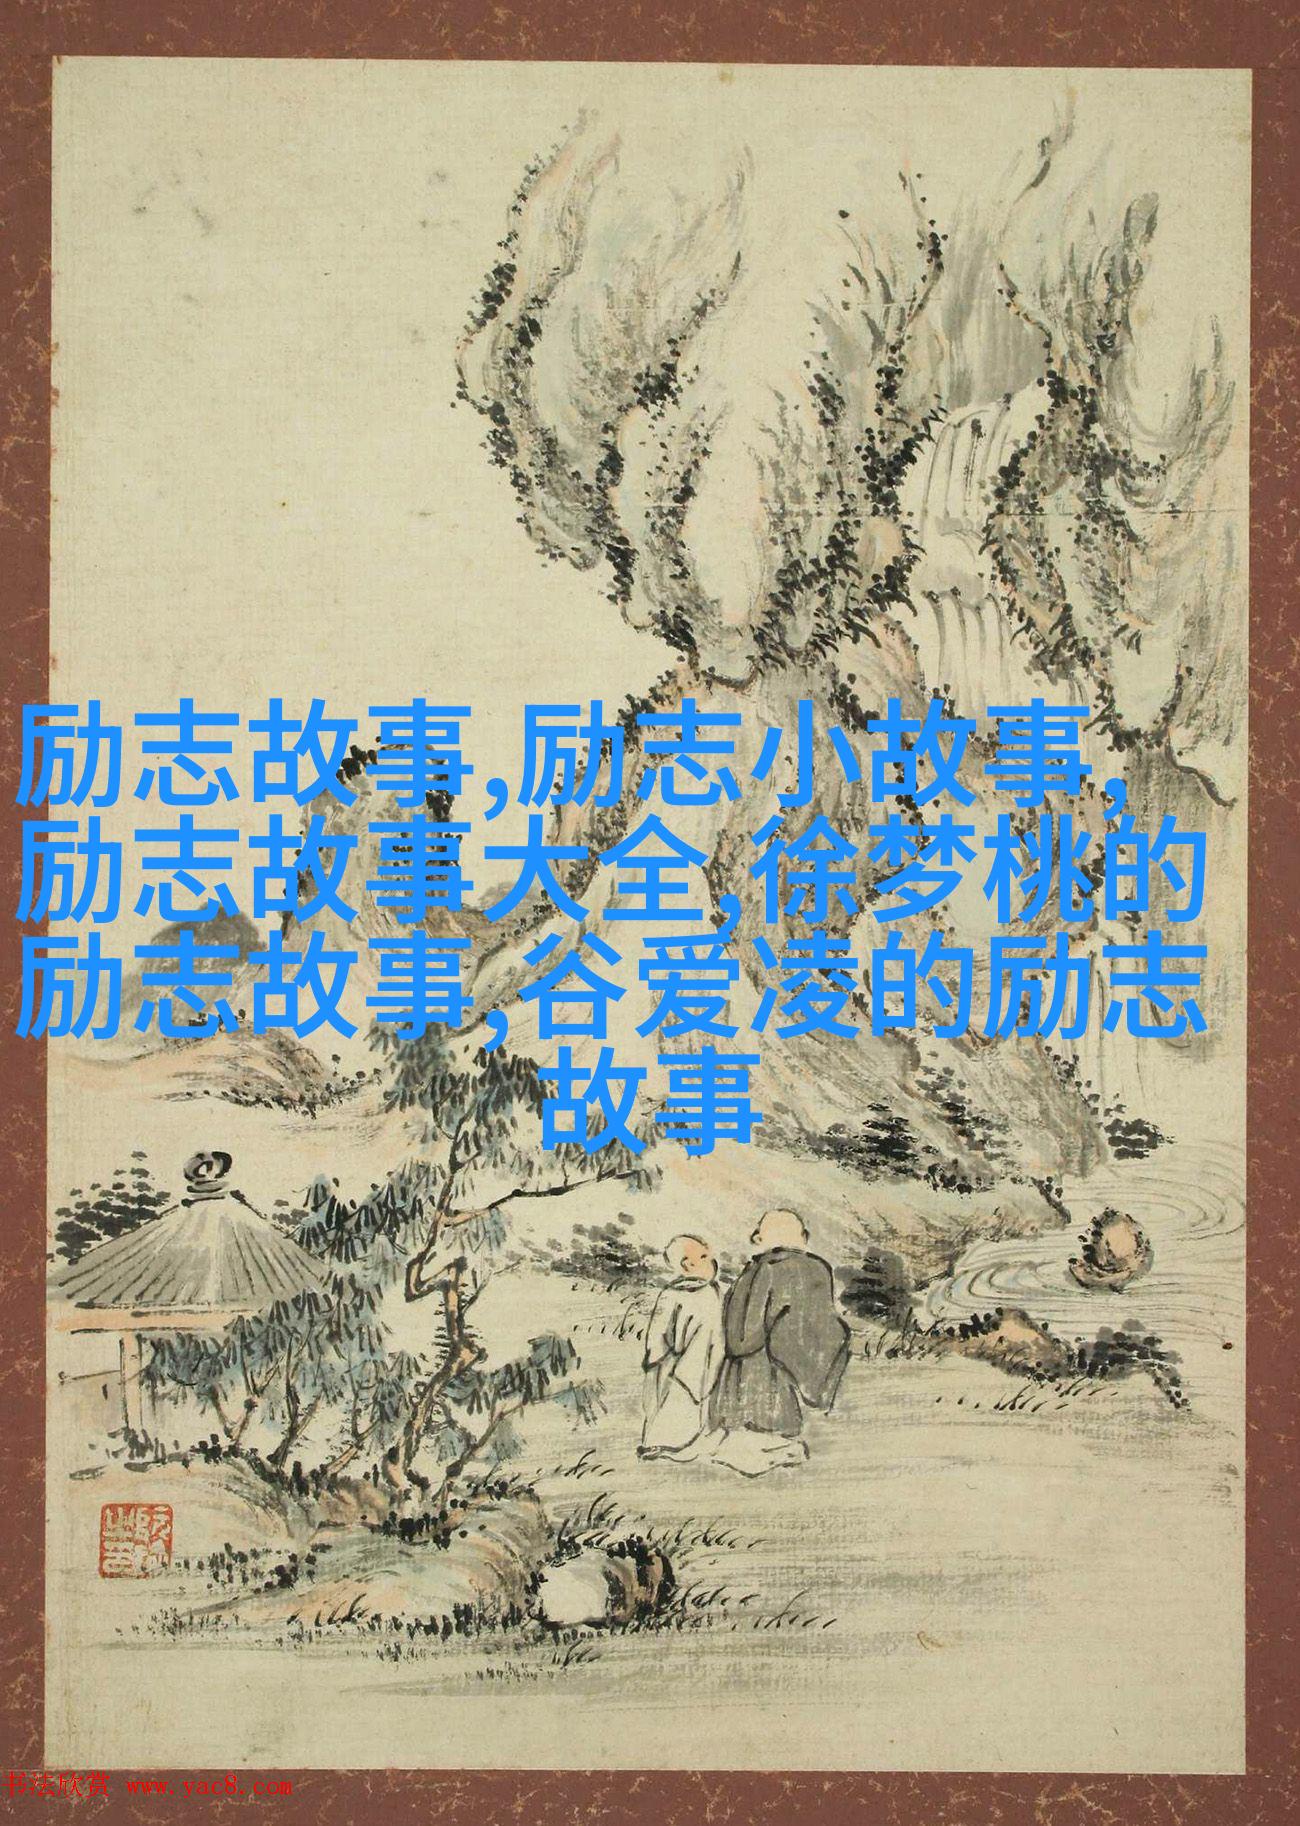 励志故事,励志小故事,
励志故事大全,徐梦桃的
励志故事,谷爱凌的励志
故事
书法欣赏 www.yac8.com